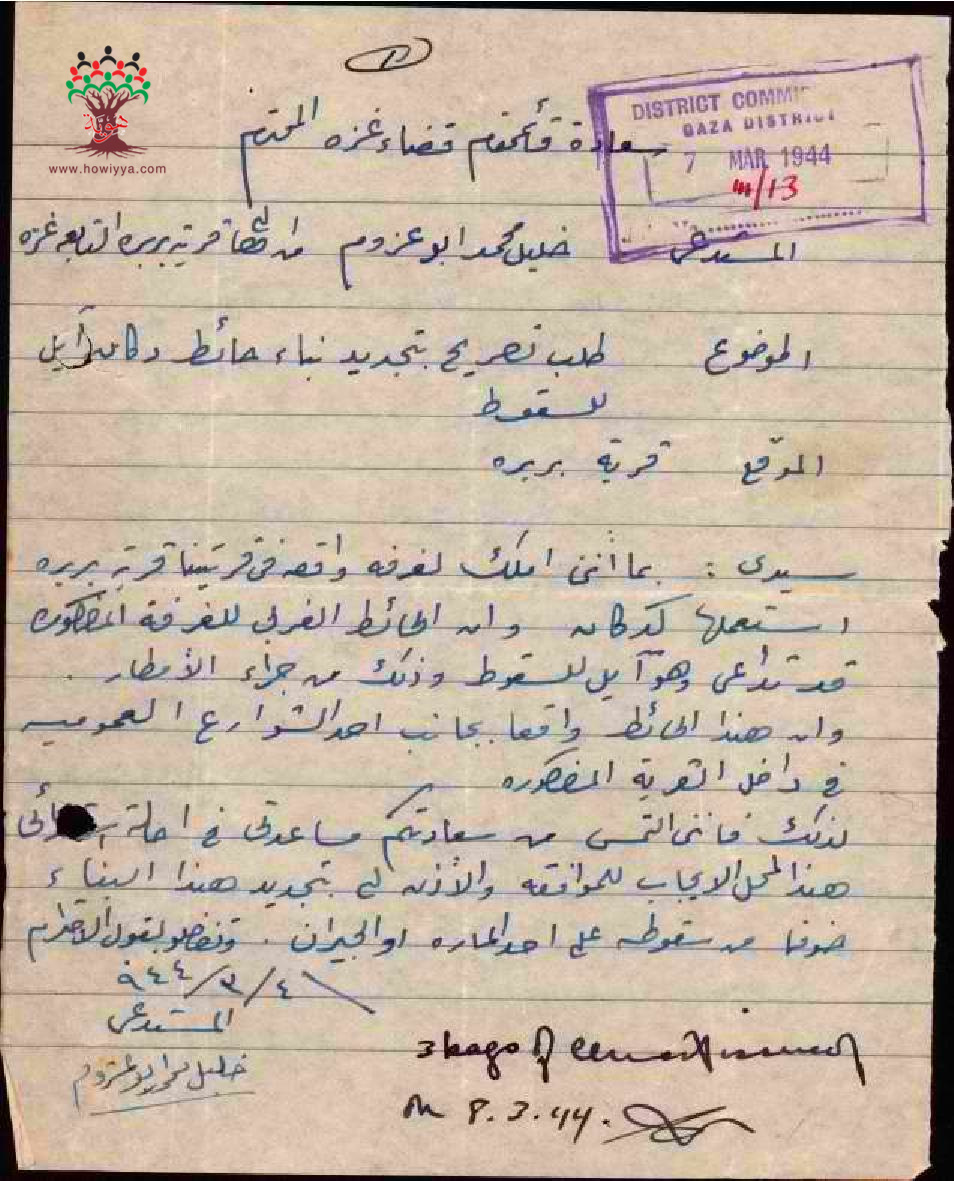 www.howiyya.com
DISTRICT COMMI
GAZA DISTRICT
7 MAR 1944
111/13
سعادة قائمقام قضاء غزه المحترم
المستدعي خليل محمد ابو عزوم من قرية بربره التابعه غزه
الموضوع طلب تصريح بتجديد بناء حائط دكان آيل
للسقوط
الموقع قرية بربره
سيدي : بما أنني املك لغرفه واقعه في قريتنا قرية بربره
استعملها كدكان وان الحائط الغربي للغرفة المذكوره
قد تداعى وهو آيل للسقوط وذلك من جراء الأمطار .
وان هذا الحائط واقعا بجانب احد الشوارع العموميه
في داخل القرية المذكوره
لذلك فانني التمس من سعادتكم مساعدتي في احالة
هذا المحل الايجاب للموافقه والأذن لي بتجديد هذا البناء
خوفا من سقوطه على احد الماره او الجيران . وتفضلو بقبول الاحترام
٩٤٤/٣/٤
المستدعي
خليل محمد ابو عزوم
8.3.44.